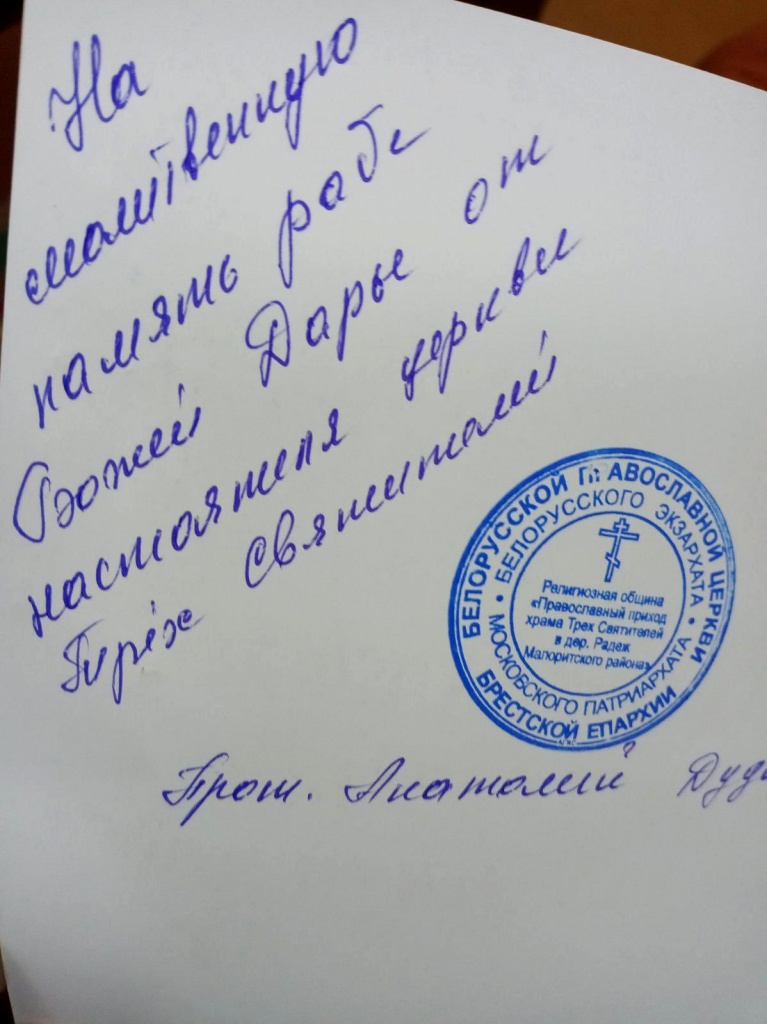 На
молитвенную
память рабе
Божей Дарье от
настоятеля церкви
Трёх Святителей
БЕЛОРУССКОЙ ПРАВОСЛАВНОЙ ЦЕРКВИ
БЕЛОРУССКОГО ЭКЗАРХАТА
МОСКОВСКОГО ПАТРИАРХАТА
БРЕСТСКОЙ ЕПАРХИИ
Религиозная община
«Православный приход
храма Трех Святителей
в дер. Радеж
Малоритского района»
Прот. Анатолий